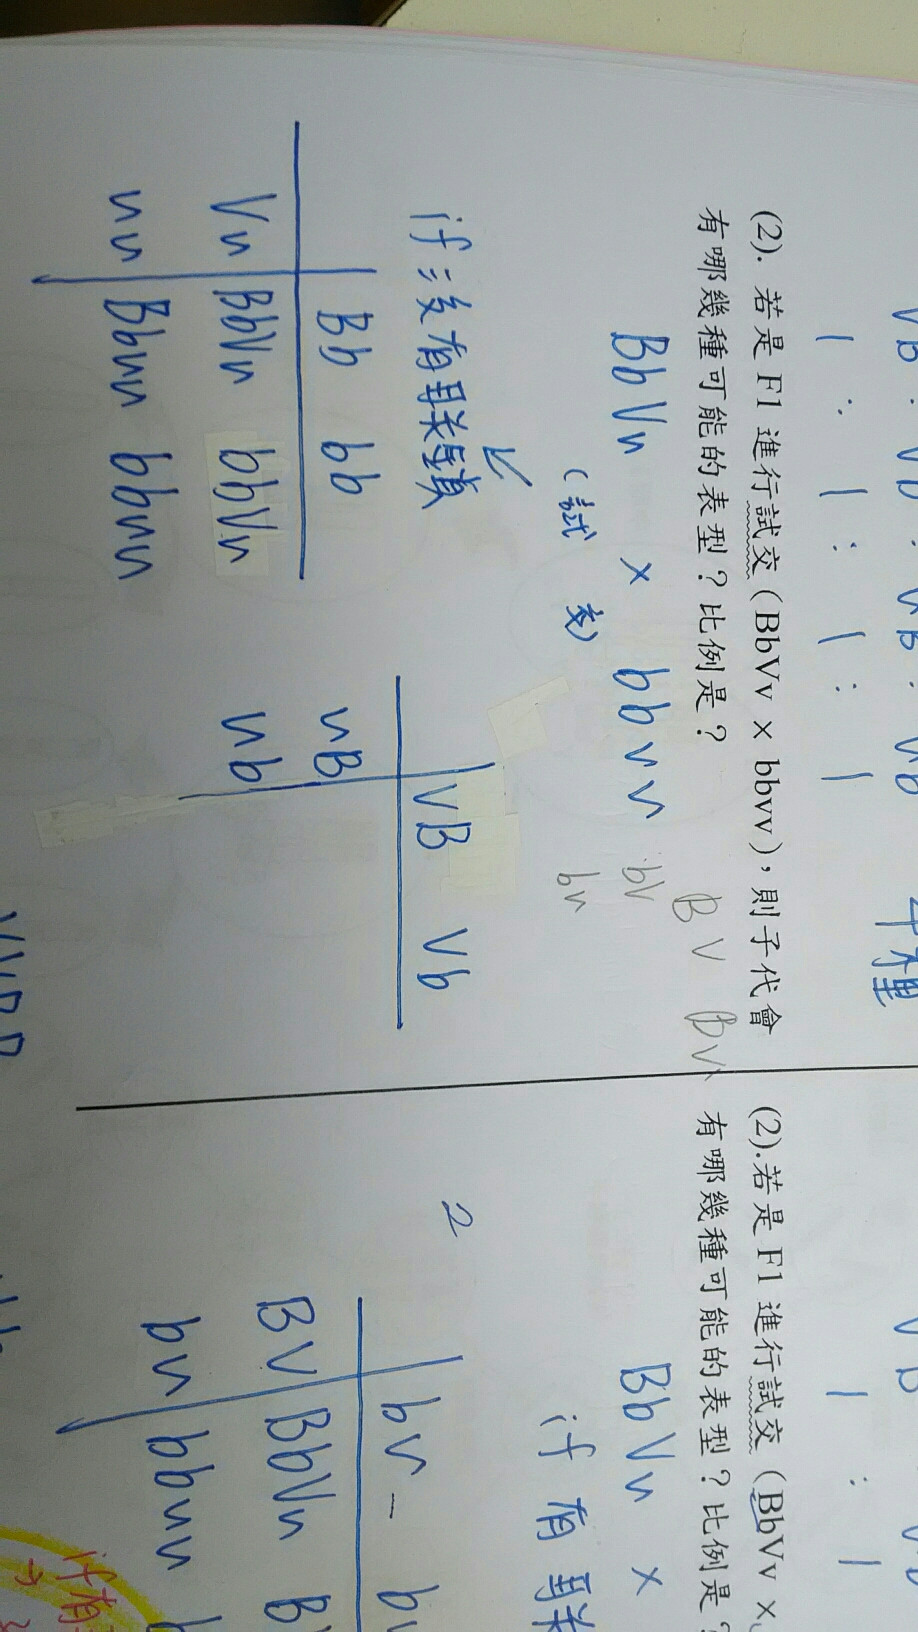 VB : Vb : vB : vb
1 : 1 : 1 : 1
(2). 若是 F1 進行試交 ( BbVv × bbvv )，則子代會
有哪幾種可能的表型？比例是？
BV Bv
BbVv × bbvv bV
(試交) bv
if 沒有聯鎖
VB Vb
Bb bb
vB
Vv BbVv bbVv
vb
vv Bbvv bbvv
(2).若是 F1 進行試交 ( BbVv ×
有哪幾種可能的表型？比例是？
1 : 1
BbVv ×
if 有聯
2
bv
BV BbVv
bv bbvv
if有